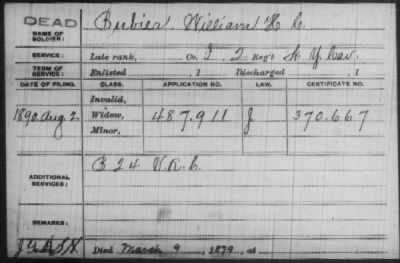 DEAD
NAME OF SOLDIER: Bubier William H. C.
SERVICE: Late rank, Co. I, 2 Reg't N.Y. Cav.
TERM OF SERVICE: Enlisted , 1 Discharged , 1
DATE OF FILING. CLASS. APPLICATION NO. LAW. CERTIFICATE NO.
Invalid,
1890. Aug. 2 Widow, 487.911 J 370.667
Minor,
ADDITIONAL SERVICES: B 24 V.R.C.
REMARKS:
Died March 9, 1879, at